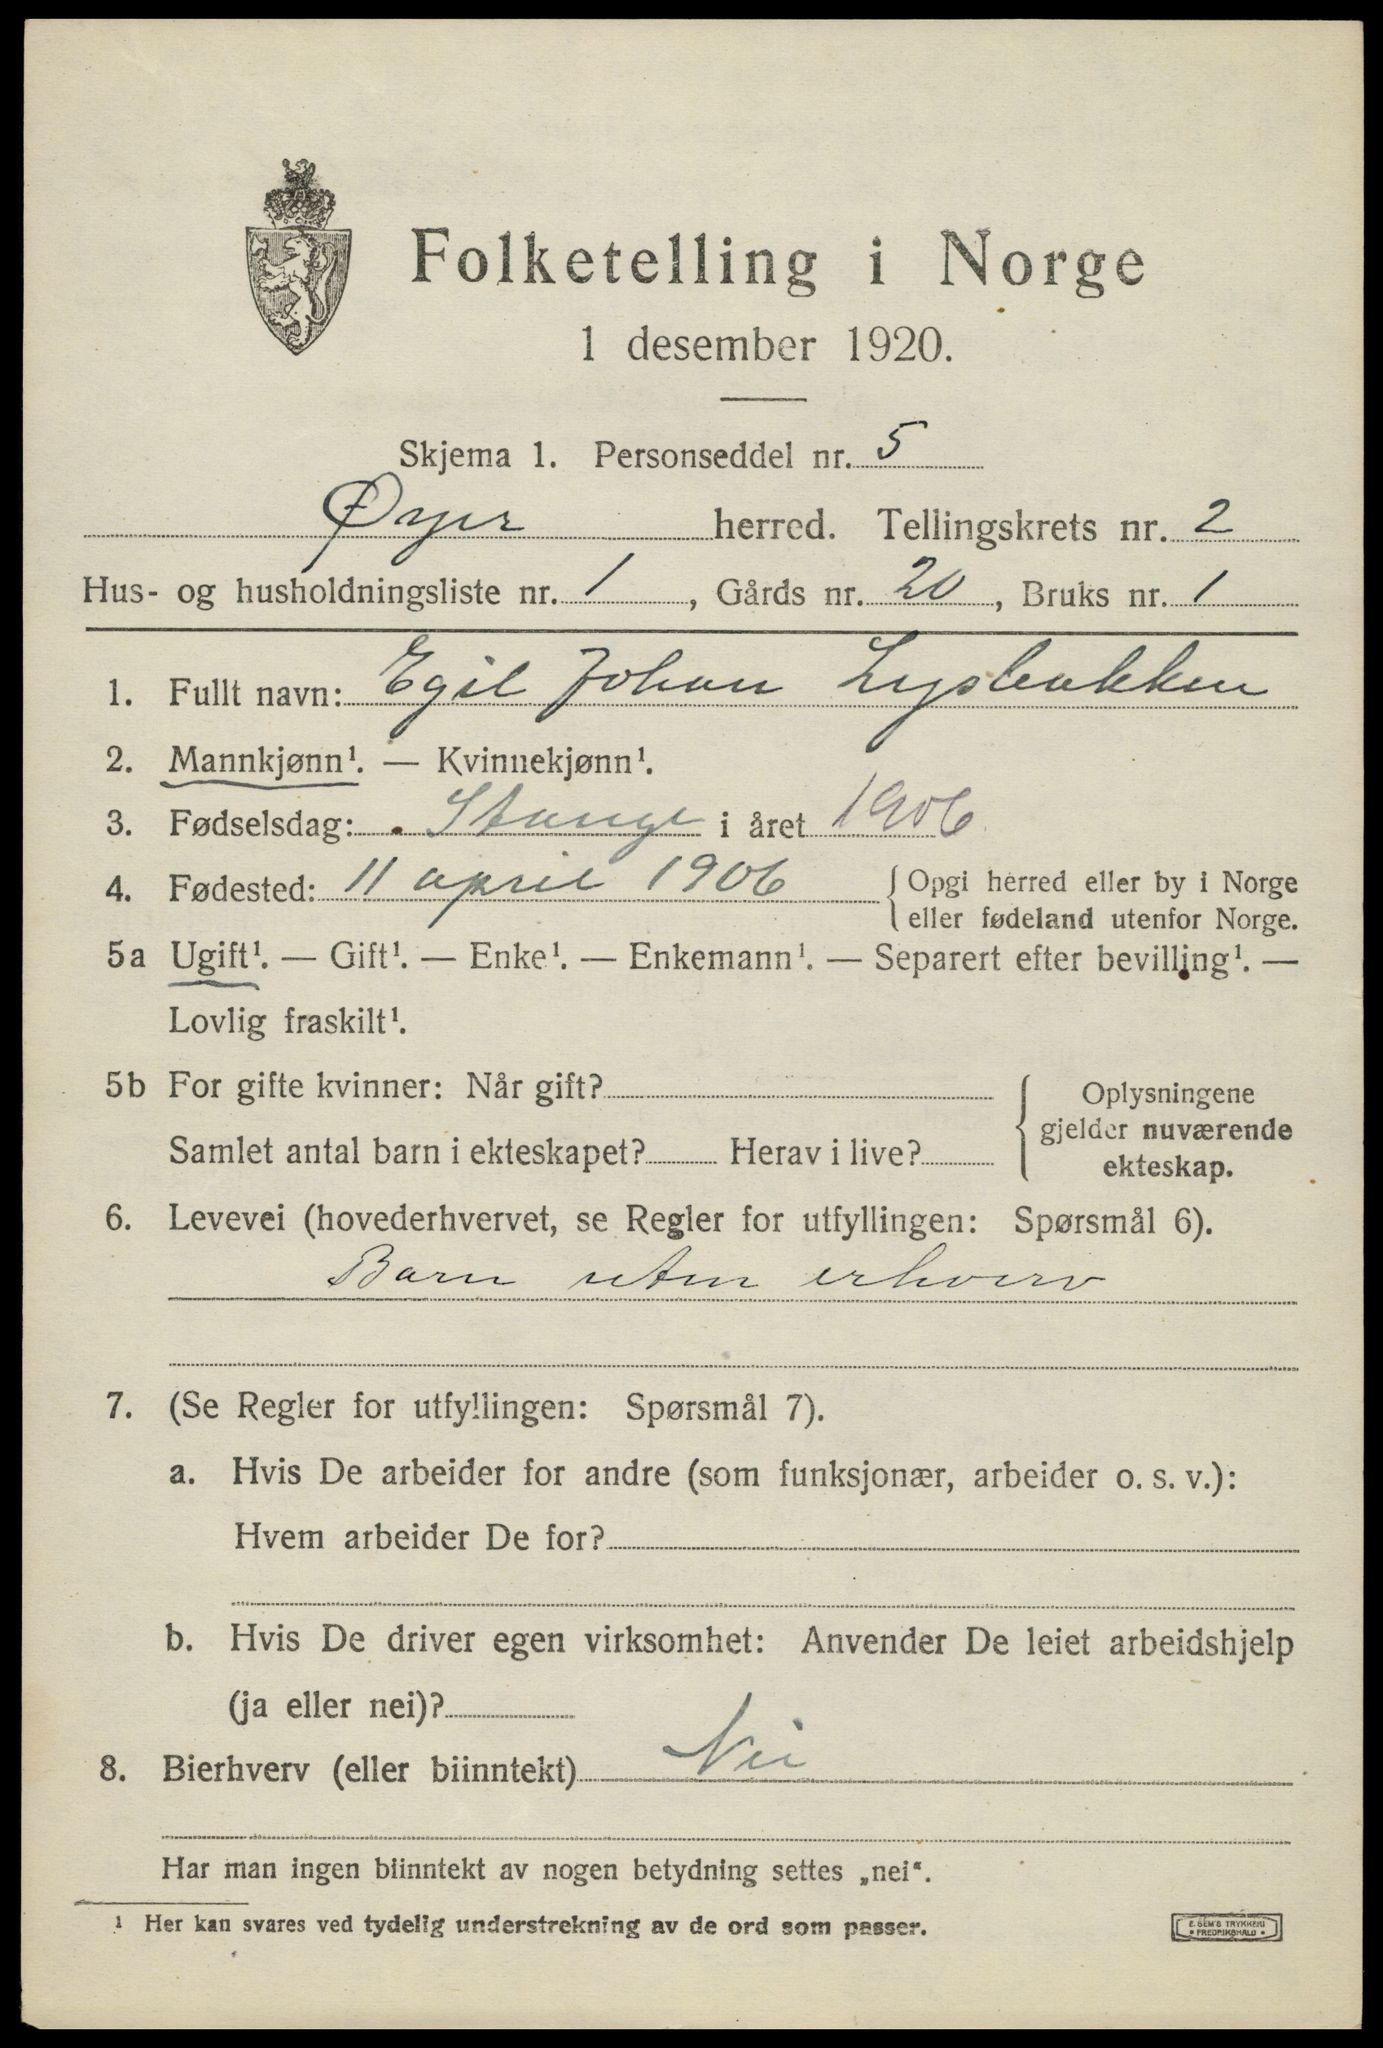 Folketelling i Norge
1 desember 1920.
Skjema 1. Personseddel nr. 5
Øyer herred. Tellingskrets nr. 2
Hus- og husholdningsliste nr. 1, Gårds nr. 20, Bruks nr. 1
1. Fullt navn: Egil Johan Lysbakken
2. Mannkjønn¹. — Kvinnekjønn¹.
3. Fødselsdag: Stange i året 1906
4. Fødested: 11 april 1906 {Opgi herred eller by i Norge
eller fødeland utenfor Norge.
5a Ugift¹. — Gift¹. — Enke¹. — Enkemann¹. — Separert efter bevilling¹. —
Lovlig fraskilt¹.
5b For gifte kvinner: Når gift?
Samlet antal barn i ekteskapet? Herav i live?
Oplysningene
gjelder nuværende
ekteskap.
6. Levevei (hovederhvervet, se Regler for utfyllingen: Spørsmål 6).
Barn uten erhverv
7. (Se Regler for utfyllingen: Spørsmål 7).
a. Hvis De arbeider for andre (som funksjonær, arbeider o. s. v.):
Hvem arbeider De for?
b. Hvis De driver egen virksomhet: Anvender De leiet arbeidshjelp
(ja eller nei)?
8. Bierhverv (eller biinntekt) Nei
Har man ingen biinntekt av nogen betydning settes „nei“.
¹ Her kan svares ved tydelig understrekning av de ord som passer.
E. SEM'S TRYKKERI
• FREDRIKSHALD •